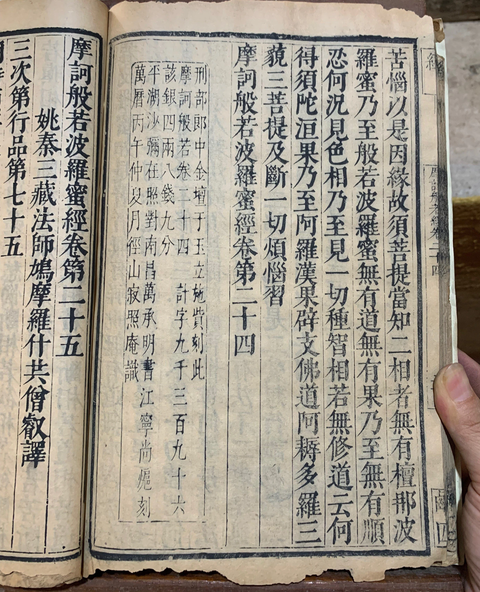 苦惱以是因緣故須菩提當知二相者無有檀那波
羅蜜乃至般若波羅蜜無有道無有果乃至無有順
忍何況見色相乃至見一切種智相若無修道云何
得須陀洹果乃至阿羅漢果辟支佛道阿耨多羅三
藐三菩提及斷一切煩惱習
摩訶般若波羅蜜經卷第二十四
刑部郎中金壇于玉立施貲刻此
摩訶般若卷二十四 計字九千三百九十六
該銀四兩八錢九分
平湖沙彌在照對南昌萬承明書江寧尚榳刻
萬曆丙午仲㑴月徑山寂照庵識
摩訶般若波羅蜜經卷第二十五
姚秦三藏法師鳩摩羅什共僧叡譯
三次第行品第七十五